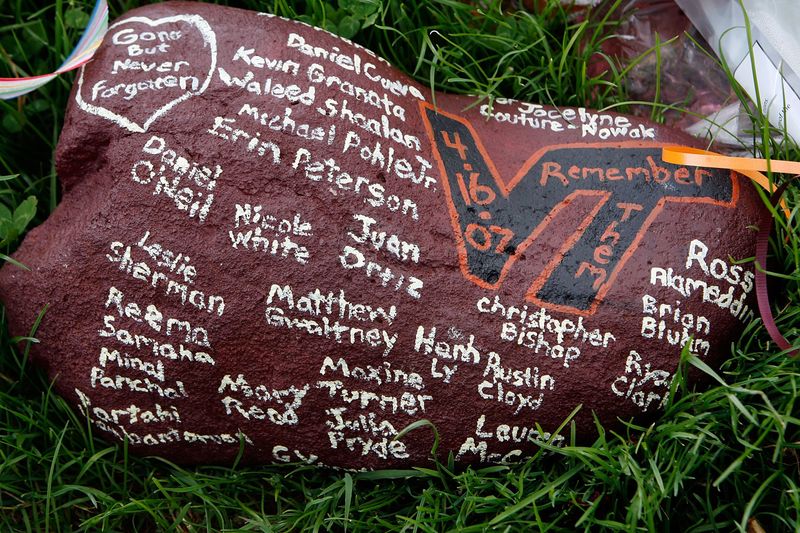 Gone
But
Never
Forgotten
Daniel
Kevin Granata
Waleed Shaalan
Michael Pohle Jr.
Erin Peterson
Daniel
O'Neil
Nicole
White
Juan
Ortiz
Jocelyne
Couture-Nowak
4.16.07
VT
Remember
Them
Leslie
Sherman
Reema
Samaha
Minal
Panchal
Matthew
Gwaltney
Mary
Read
Maxine
Turner
Julia
Pryde
Henh
Ly
Christopher
Bishop
Austin
Cloyd
Lauren
Ross
Alameddin
Brian
Bluhm
Clark